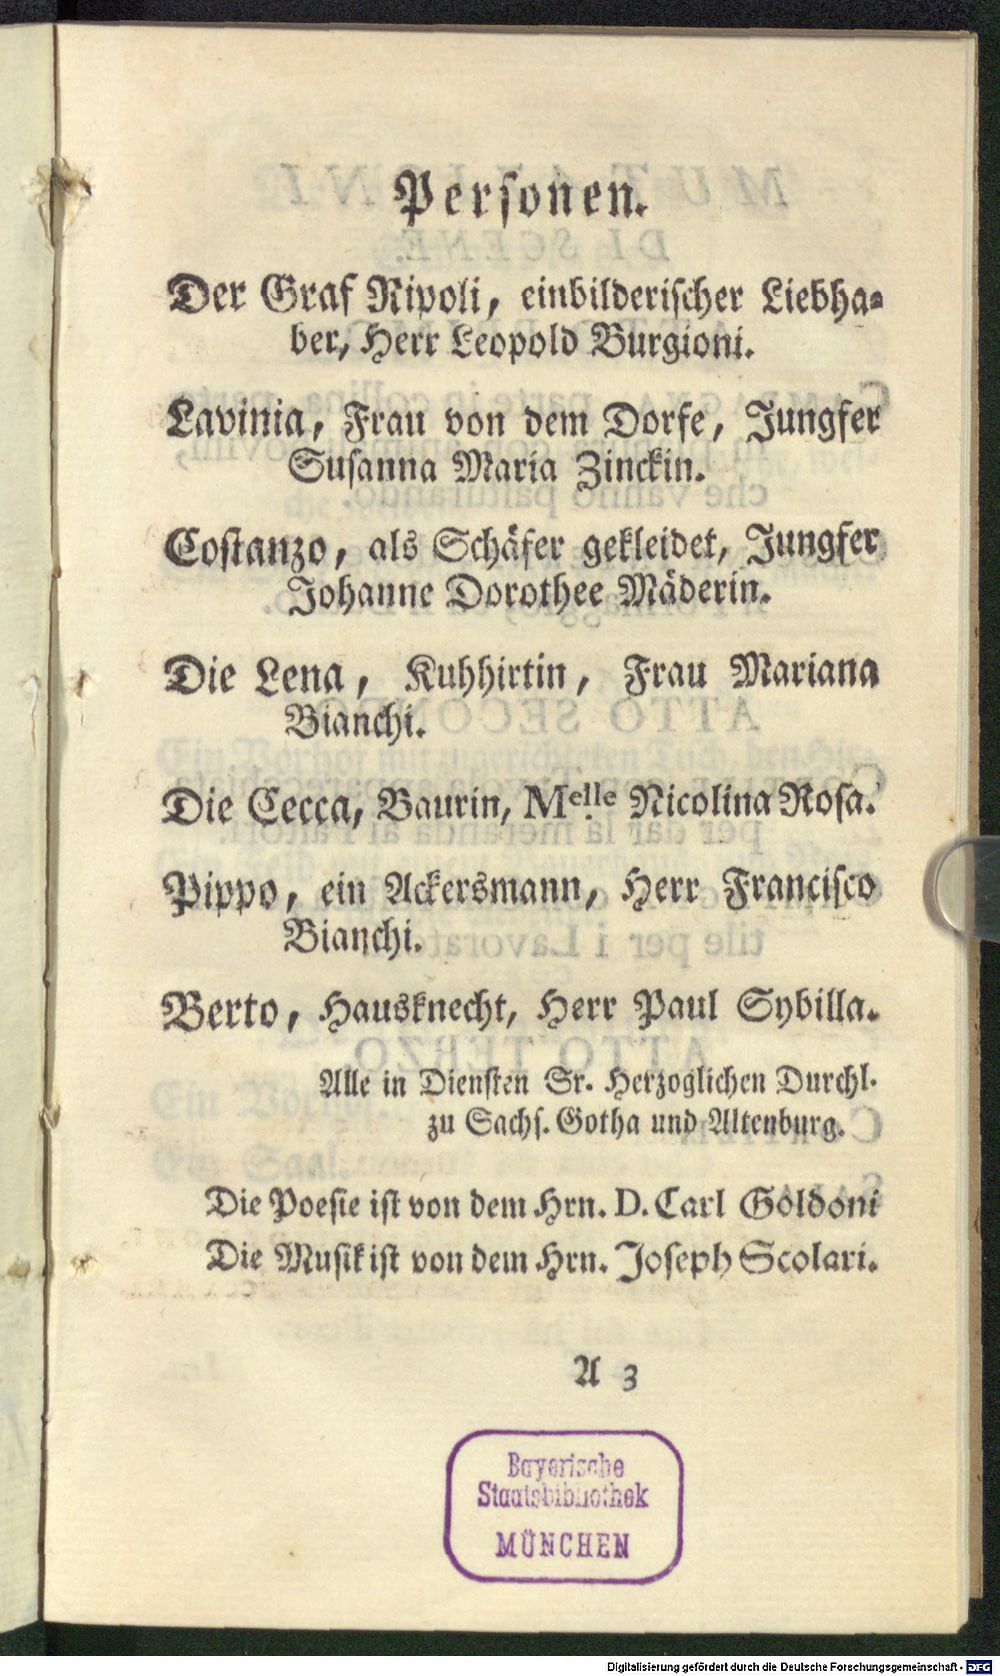 Personen.
Der Graf Ripoli, einbilderischer Liebha=
ber, Herr Leopold Burgioni.
Lavinia, Frau von dem Dorfe, Jungfer
Susanna Maria Zinckin.
Costanzo, als Schäfer gekleidet, Jungfer
Johanne Dorothee Mäderin.
Die Lena, Kuhhirtin, Frau Mariana
Bianchi.
Die Cecca, Baurin, Melle Nicolina Rosa.
Pippo, ein Ackersmann, Herr Francisco
Bianchi.
Berto, Hausknecht, Herr Paul Sybilla.
Alle in Diensten Sr. Herzoglichen Durchl.
zu Sachs. Gotha und Altenburg.
Die Poesie ist von dem Hrn. D. Carl Goldoni
Die Musik ist von dem Hrn. Joseph Scolari.
A 3
Bayerische
Staatsbibliothek
MÜNCHEN
Digitalisierung gefördert durch die Deutsche Forschungsgemeinschaft - DFG